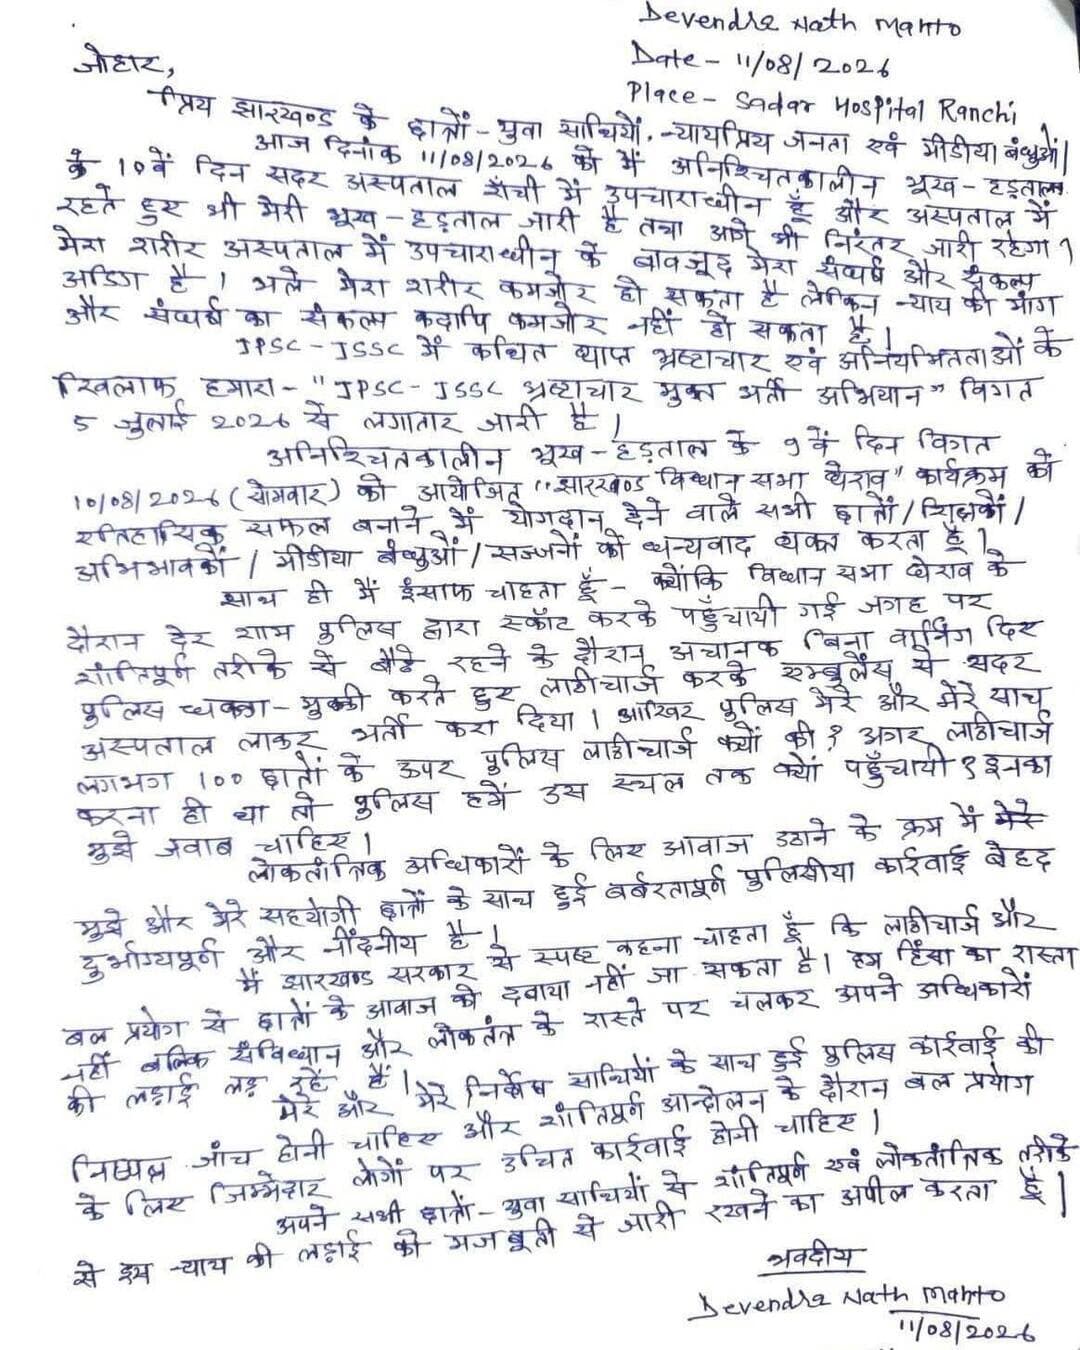 Devendra Nath Mahto
Date - 11/08/2026
Place - Sadar Hospital Ranchi
जोहार,
प्रिय झारखण्ड के छात्रों - युवा साथियों, न्यायप्रिय जनता एवं मीडीया बंधुओं।
आज दिनांक 11/08/2026 को मैं अनिश्चितकालीन भूख - हड़ताल
के 10 वें दिन सदर अस्पताल राँची में उपचाराधीन हूँ और अस्पताल में
रहते हुए भी मेरी भूख - हड़ताल जारी है तथा आगे भी निरंतर जारी रहेगा।
मेरा शरीर अस्पताल में उपचाराधीन के बावजूद मेरा संघर्ष और संकल्प
अडिग है। भले मेरा शरीर कमजोर हो सकता है लेकिन न्याय की मांग
और संघर्ष का संकल्प कदापि कमजोर नहीं हो सकता है।
JPSC - JSSC में कथित व्याप्त भ्रष्टाचार एवं अनियमितताओं के
खिलाफ हमारा - "JPSC - JSSC भ्रष्टाचार मुक्त भर्ती अभियान" विगत
5 जुलाई 2026 से लगातार जारी है।
अनिश्चितकालीन भूख - हड़ताल के 9 वें दिन विगत
10/08/2026 (सोमवार) को आयोजित "झारखण्ड विधान सभा घेराव" कार्यक्रम को
एतिहासिक सफल बनाने में योगदान देने वाले सभी छात्रों / शिक्षकों /
अभिभावकों / मीडीया बंधुओं / सज्जनों को धन्यवाद व्यक्त करता हूँ।
साथ ही मैं इंसाफ चाहता हूँ - क्योंकि विधान सभा घेराव के
दौरान देर शाम पुलिस द्वारा स्कॉट करके पहुँचायी गई जगह पर
शांतिपूर्ण तरीके से बैठे रहने के दौरान अचानक बिना वार्निंग दिए
पुलिस धक्का - मुक्की करते हुए लाठीचार्ज करके एम्बुलेंस से सदर
अस्पताल लाकर भर्ती करा दिया। आखिर पुलिस मेरे और मेरे साथ
लगभग 100 छात्रों के ऊपर पुलिस लाठीचार्ज क्यों की? अगर लाठीचार्ज
करना ही था तो पुलिस हमें उस स्थल तक क्यों पहुँचायी? इनका
मुझे जवाब चाहिए।
लोकतांत्रिक अधिकारों के लिए आवाज उठाने के क्रम में मेरे
मुझे और मेरे सहयोगी छात्रों के साथ हुई बर्बरतापूर्ण पुलिसीया कार्रवाई बेहद
दुर्भाग्यपूर्ण और नींदनीय है।
मैं झारखण्ड सरकार से स्पष्ट कहना चाहता हूँ कि लाठीचार्ज और
बल प्रयोग से छात्रों के आवाज को दवाया नहीं जा सकता है। हम हिंसा का रास्ता
नहीं बल्कि संविधान और लोकतंत्र के रास्ते पर चलकर अपने अधिकारों
की लड़ाई लड़ रहें हैं।
मेरे और मेरे निर्दोष साथियों के साथ हुई पुलिस कार्रवाई की
निष्पक्ष जांच होनी चाहिए और शांतिपूर्ण आन्दोलन के दौरान बल प्रयोग
के लिए जिम्मेदार लोगों पर उचित कार्रवाई होनी चाहिए।
अपने सभी छात्रों - युवा साथियों से शांतिपूर्ण एवं लोकतांत्रिक तरीके
से इस न्याय की लड़ाई को मजबूती से जारी रखने का अपील करता हूँ।
भवदीय
Devendra Nath Mahto
11/08/2026